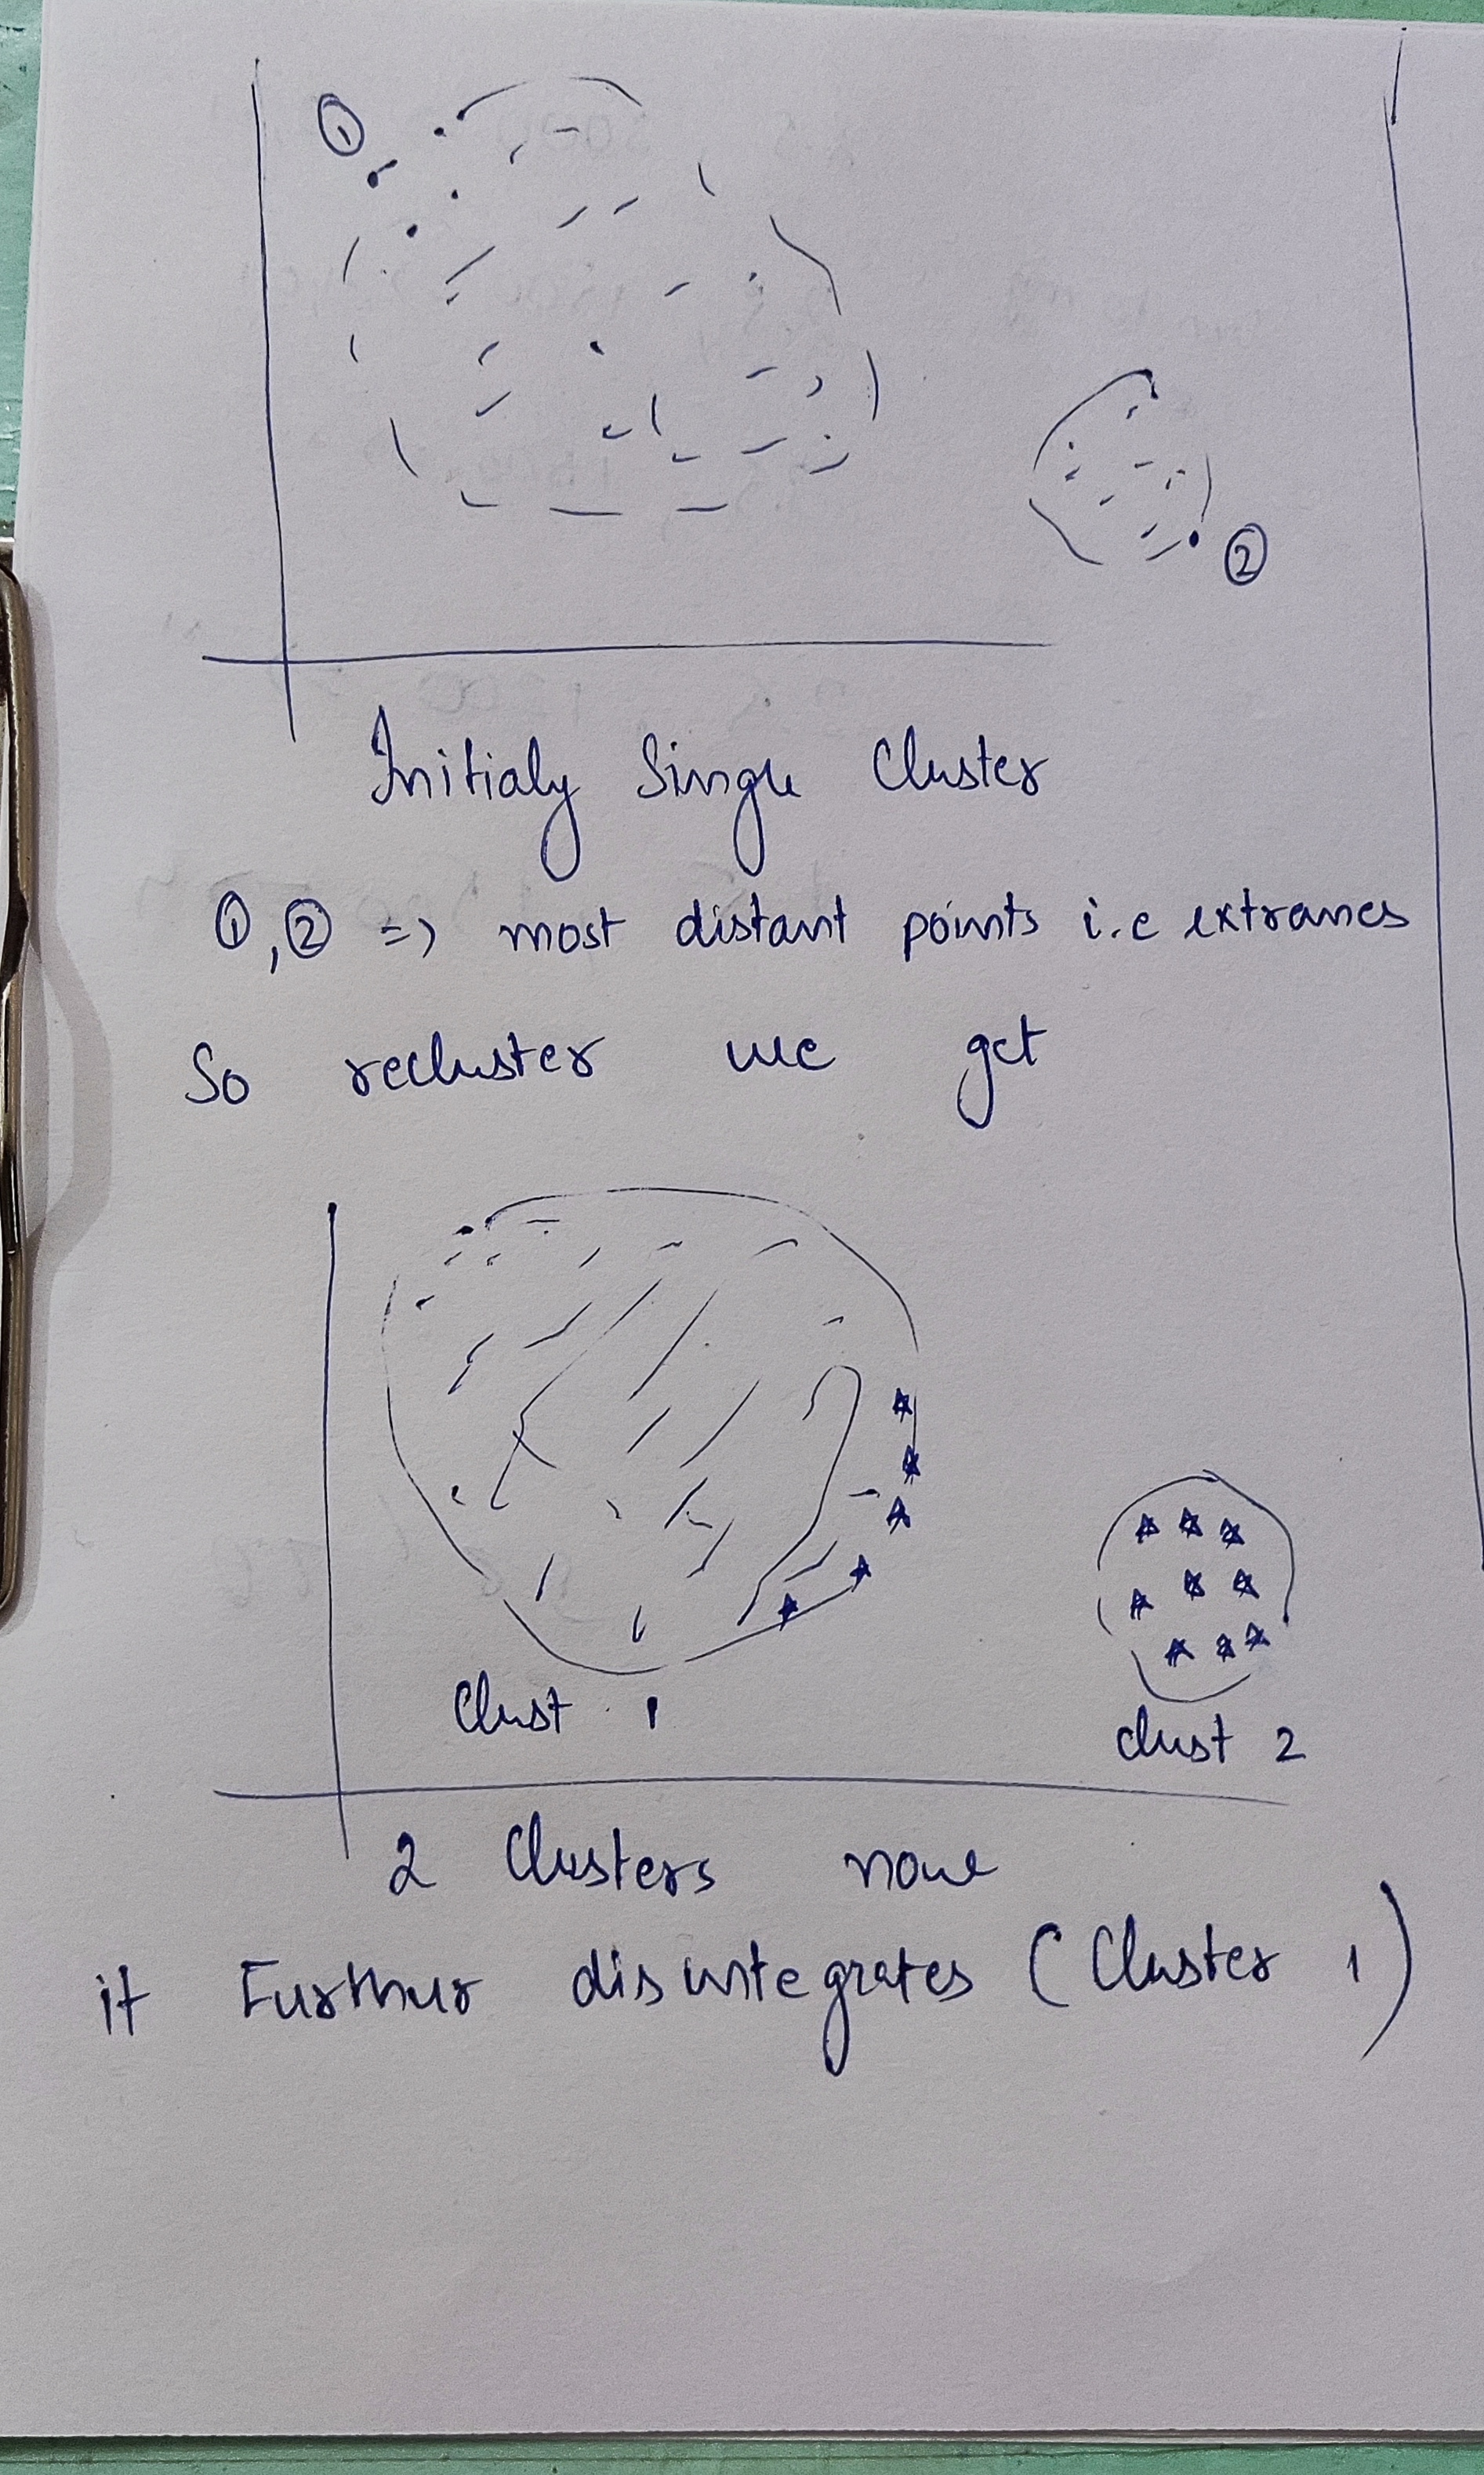 ①
②
Initialy Single Cluster
①,② => most distant points i.e extrames
So recluster we get
Clust 1
clust 2
2 Clusters now
it Further disintegrates (Cluster 1)